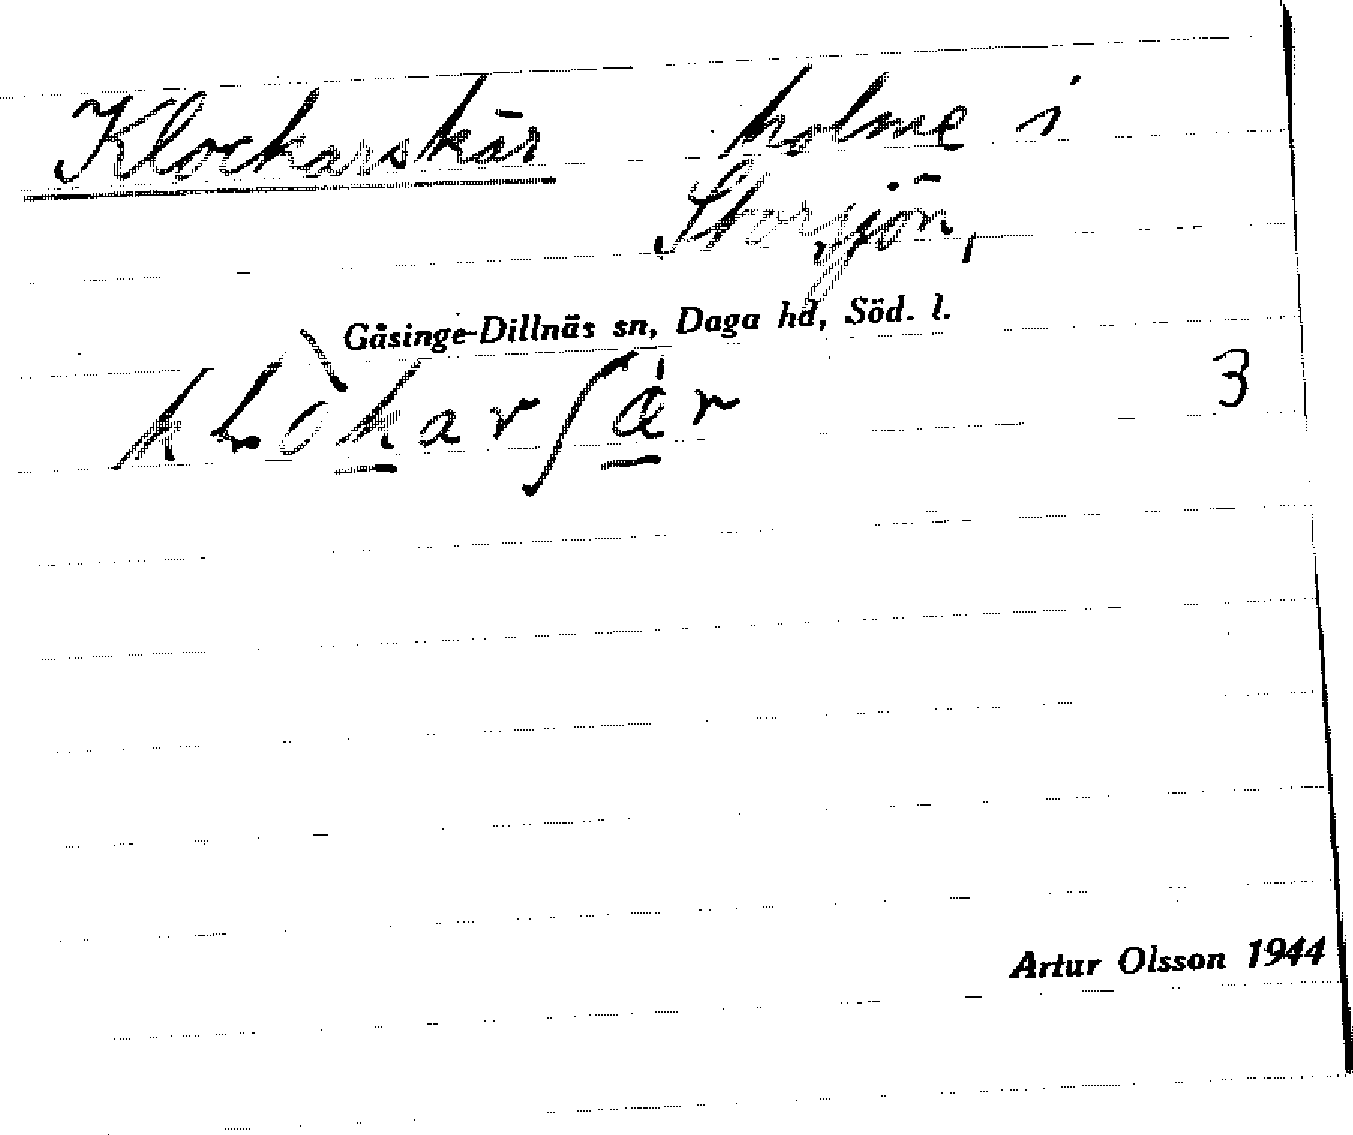 Klockarskär holme i
Storsjön,
Gåsinge-Dillnäs sn, Daga hd, Söd. l.
3
Artur Olsson 1944